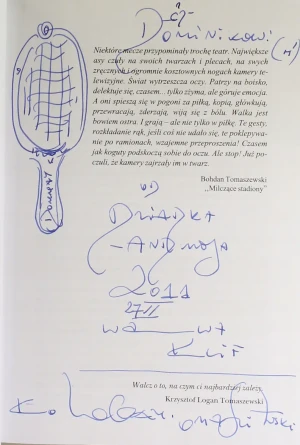 Dominikowi
Niektóre mecze przypominały trochę teatr. Największe
asy czuły na swoich twarzach i plecach, na swych
zręcznych i ogromnie kosztownych nogach kamery te-
lewizyjne. Świat wytrzeszcza oczy. Patrzy na boisko,
delektuje się, czasem... tylko zżyma, ale góruje emocja.
A oni spieszą się w pogoni za piłką, kopią, główkują,
przewracają, zderzają, wiją się z bólu. Walka jest
bowiem ostra. I grają – ale nie tylko w piłkę. Te gesty,
rozkładanie rąk, jeśli coś nie udało się, te poklepywa-
nie po ramionach, wzajemne przeproszenia! Czasem
jak koguty podskoczą sobie do oczu. Ale stop! Już po-
czuli, że kamery zajrzały im w twarz.
Bohdan Tomaszewski
„Milczące stadiony”
od
Dziadka
2011
27 II
Walcz o to, na czym ci najbardziej zależy.
Krzysztof Logan Tomaszewski